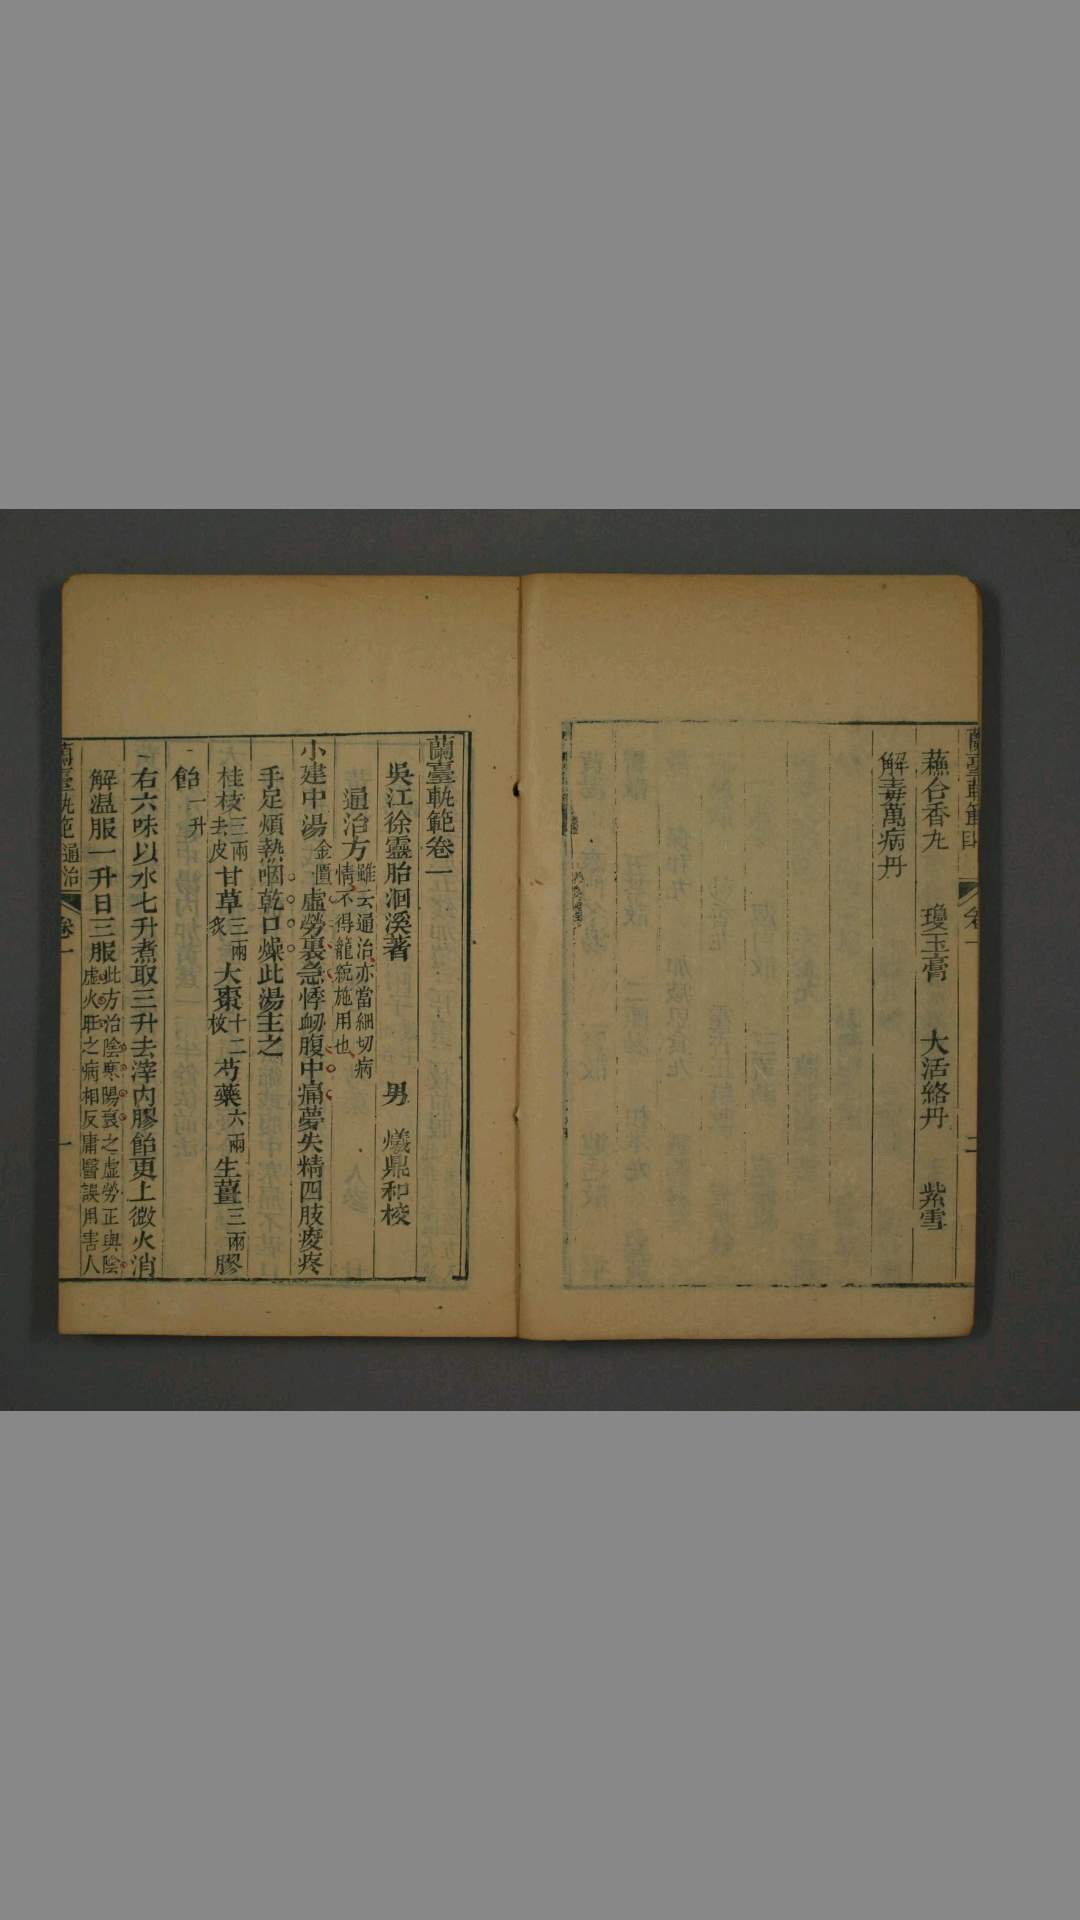 蘇合香丸　瓊玉膏　大活絡丹　紫雪
解毒萬病丹
蘭臺軌範卷一
吳江徐靈胎洄溪著　男　爔鼎和校
通治方雖云通治亦當細切病情不得籠統施用也
小建中湯金匱虛勞裏急悸衂腹中痛夢失精四肢痠疼
手足煩熱咽乾口燥此湯主之
桂枝三兩去皮甘草三兩炙大棗十二枚芍藥六兩生薑三兩膠
飴一升
右六味以水七升煮取三升去滓内膠飴更上微火消
解温服一升日三服此方治陰寒陽衰之虛勞正與陰虛火旺之病相反庸醫誤用害人
蘭臺軌範　通治　卷一　一